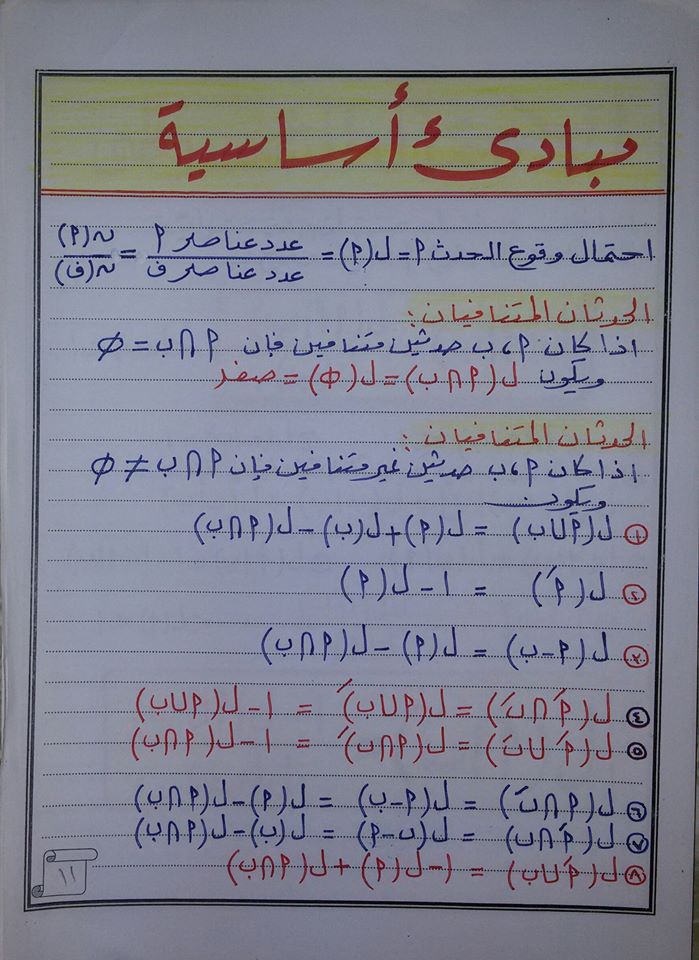 مبادئ أساسية
احتمال وقوع الحدث P = ل(P) = عدد عناصر P / عدد عناصر ف = ن(P) / ن(ف)
الحدثان المتنافيان :
اذا كان P ، ب حدثين متنافين فإن P ∩ ب = φ
ويكون ل(P ∩ ب) = ل(φ) = صفر
الحدثان المتنافيان :
اذا كان P ، ب حدثين غير متنافين فإن P ∩ ب ≠ φ
ويكون
① ل(P ∪ ب) = ل(P) + ل(ب) − ل(P ∩ ب)
② ل(Ṕ) = ١ − ل(P)
③ ل(P − ب) = ل(P) − ل(P ∩ ب)
④ ل(Ṕ ∩ ب́) = ل(P ∪ ب)́ = ١ − ل(P ∪ ب)
⑤ ل(Ṕ ∪ ب́) = ل(P ∩ ب)́ = ١ − ل(P ∩ ب)
⑥ ل(P ∩ ب́) = ل(P − ب) = ل(P) − ل(P ∩ ب)
⑦ ل(Ṕ ∩ ب) = ل(ب − P) = ل(ب) − ل(P ∩ ب)
⑧ ل(Ṕ ∪ ب) = ١ − ل(P) + ل(P ∩ ب)
١١